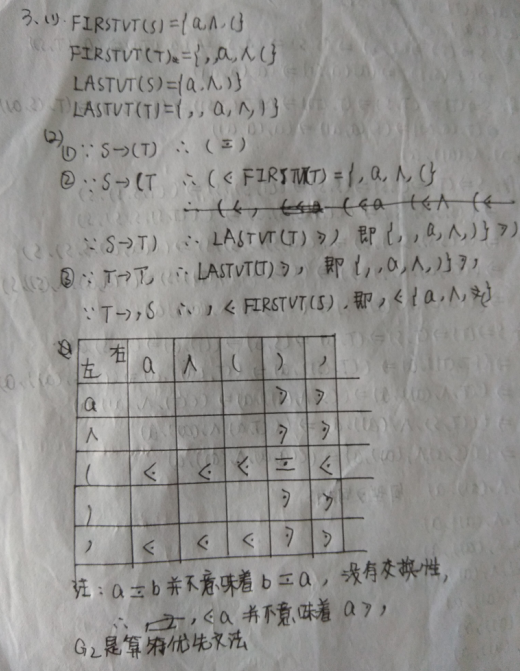 3.(1). FIRSTVT(S)={a,∧,(}
FIRSTVT(T)={,,a,∧,(}
LASTVT(S)={a,∧,)}
LASTVT(T)={,,a,∧,)}
(2)
① ∵ S→(T) ∴ ( ≖ )
② ∵ S→(T ∴ (⋖ FIRSTVT(T)={,,a,∧,(}
∴ (⋖, (⋖a (⋖∧ (⋖
∵ S→T) ∴ LASTVT(T)⋗), 即{,,a,∧,)}⋗)
③ ∵ T→T, ∴ LASTVT(T)⋗, 即{,,a,∧,)}⋗,
∵ T→,S ∴ ,⋖FIRSTVT(S).即,⋖{a,∧,(}
左 右 a ∧ ( ) ,
a ⋗ ⋗
∧ ⋗ ⋗
( ⋖ ⋖ ⋖ ≖ ⋖
) ⋗ ⋗
, ⋖ ⋖ ⋖ ⋗ ⋗
注: a≖b并不意味着b≖a, 没有交换性,
∴ ,⋖a 并不意味着 a⋗,
G2是算符优先文法